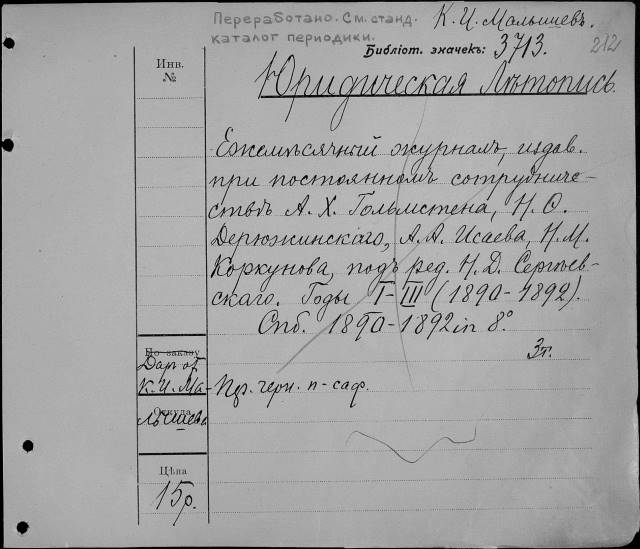 Переработано. См. станд.
каталог периодики.
К. И. Малышевъ.
Библіот. значекъ: 3713.
212
Инв.
№
Юридическая Лѣтопись.
Ежемѣсячный журналъ, издав.
при постоянномъ сотрудниче-
ствѣ А. Х. Гольмстена, Н. О.
Дерюжинскаго, А. А. Исаева, Н. М.
Коркунова, подъ ред. Н. Д. Сергѣев-
скаго. Годы I-III (1890-1892).
Спб. 1890-1892 in 8°.
3т.
По заказу
Даръ отъ
К. И. Ма-
Откуда
лышева
Пер. черн. п-саф.
Цѣна
15р.